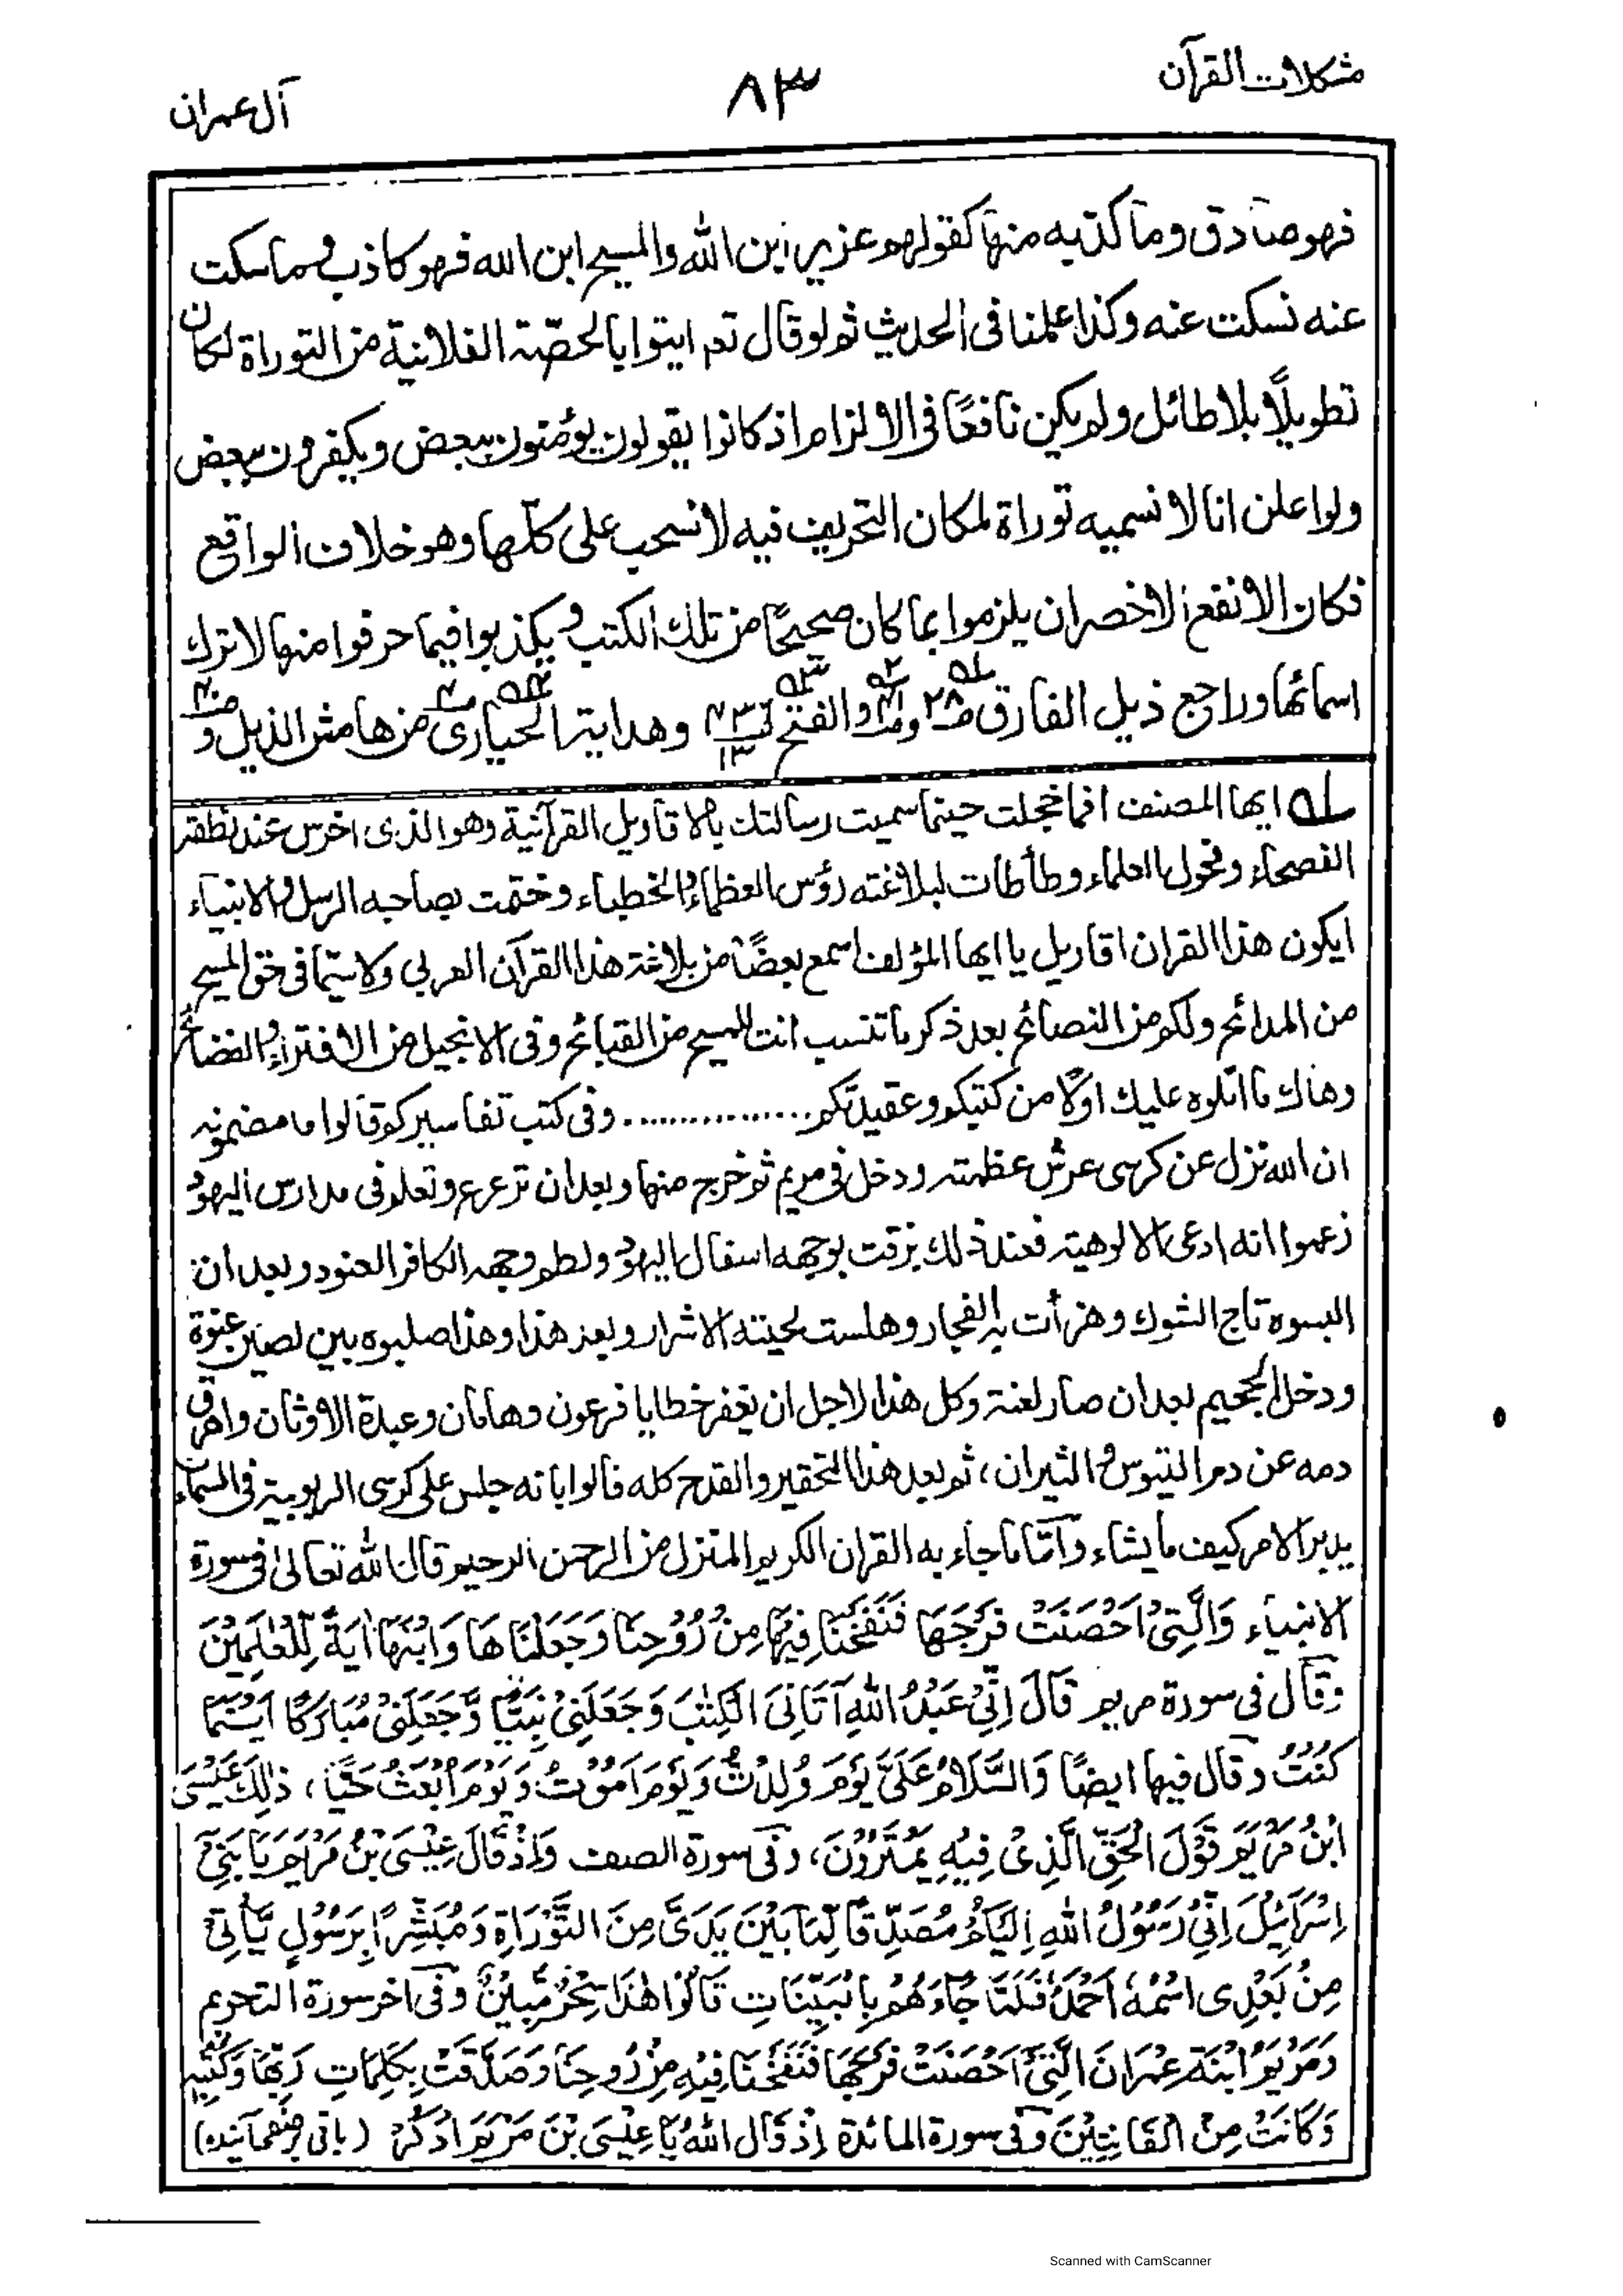 مشكلات القرآن
٨٣
آل عمران
فهو صادق وما كذبه منها كقولهم عزير ابن الله والمسيح ابن الله فهو كاذب وما سكت
عنه نسكت عنه وكذا علمنا فى الحديث ثم لو قال تعم ايتوا بالحصّة الفلانية من التوراة لكان
تطويلاً بلا طائل ولم يكن نافعًا فى الالزام اذ كانوا يقولون يؤمنون ببعض ويكفرون ببعض
ولو اعلن انا لا نسميه توراة لمكان التحريف فيه لانسحب على كلّها وهو خلاف الواقع
فكان الانفع الاخصر ان يلزموا بما كان صحيحًا من تلك الكتب ويكذبوا فيما حرفوا منها لا ترك
اسمائها وراجع ذيل الفارق والفتح وهداية الحيارى من هامش الذيل و
له ايها المصنف افما خجلت حينما سميت رسالتك بالاقاويل القرآنية وهو الذى اخرس عند نطقه
الفصحاء وفحول العلماء وطأطأت لبلاغته رؤس العظماء والخطباء وختمت بصاحبه الرسل والانبياء
ايكون هذا القران اقاويل يا ايها المؤلف اسمع بعضًا من بلاغة هذا القرآن العربي ولا سيّما فى حق المسيح
من المدائح ولكم من النصائح بعد ذكر ما تنسب انت للمسيح من القبائح وفى الانجيل من الافتراء والفضائح
وهاك ما اتلوه عليك اولًا من كتبكم وعقيدتكم ................ وفى كتب تفاسيركم قالوا ما مضمونه
ان الله نزل عن كرسى عرش عظمته ودخل فى مريم ثم خرج منها وبعد ان ترعرع وتعلم فى مدارس اليهود
زعموا انه ادعى الالوهية فعند ذلك بزقت بوجهه اسفال اليهود ولطم وجهه الكافر العنود وبعد ان
البسوه تاج الشوك وهزأت به الفجار وهلست لحيته الاشرار وبعد هذا وهذا صلبوه بين لصين عنوة
ودخل الجحيم بعد ان صار لعنة وكل هذا لاجل ان يغفر خطايا فرعون وهامان وعبدة الاوثان واهرق
دمه عن دم التيوس والثيران، ثم بعد هذا التحقير والقدح كله قالوا بانه جلس على كرسى الربوبية فى السماء
يدبر الامر كيف ما يشاء وأمّا ما جاء به القران الكريم المنزل من الرحمن الرحيم قال الله تعالىٰ فى سورة
الانبياء وَالَّتِىْ اَحْصَنَتْ فَرْجَهَا فَنَفَخْنَا فِيْهَا مِنْ رُوْحِنَا وَجَعَلْنَاهَا وَابْنَهَا اٰيَةً لِّلْعٰلَمِيْنَ
وقال فى سورة مريم قَالَ اِنِّىْ عَبْدُ اللهِ آتَانِىَ الْكِتٰبَ وَجَعَلَنِىْ نَبِيًّا وَّجَعَلَنِىْ مُبَارَكًا اَيْنَمَا
كُنْتُ وقال فيها ايضًا وَالسَّلَامُ عَلَىَّ يَوْمَ وُلِدْتُّ وَيَوْمَ اَمُوْتُ وَيَوْمَ اُبْعَثُ حَيًّا، ذٰلِكَ عِيْسَى
ابْنُ مَرْيَمَ قَوْلَ الْحَقِّ الَّذِىْ فِيْهِ يَمْتَرُوْنَ، وفى سورة الصف وَاِذْ قَالَ عِيْسَى بْنُ مَرْيَمَ يَا بَنِىْ
اِسْرَائِيْلَ اِنِّىْ رَسُوْلُ اللهِ اِلَيْكُمْ مُصَدِّقًا لِّمَا بَيْنَ يَدَىَّ مِنَ التَّوْرَاةِ وَمُبَشِّرًا بِرَسُوْلٍ يَّأْتِىْ
مِنْ بَعْدِى اسْمُهٗ اَحْمَدُ فَلَمَّا جَاءَهُمْ بِالْبَيِّنَاتِ قَالُوْا هٰذَا سِحْرٌ مُّبِيْنٌ وفى اخر سورة التحريم
وَمَرْيَمَ ابْنَةَ عِمْرَانَ الَّتِىْ اَحْصَنَتْ فَرْجَهَا فَنَفَخْنَا فِيْهِ مِنْ رُوحِنَا وَصَدَّقَتْ بِكَلِمَاتِ رَبِّهَا وَكُتُبِهِ
وَكَانَتْ مِنَ الْقَانِتِيْنَ وفى سورة المائدة اِذْ قَالَ اللهُ يَا عِيْسَى بْنَ مَرْيَمَ اذْكُرْ (باقى برصفحه آئنده)
Scanned with CamScanner